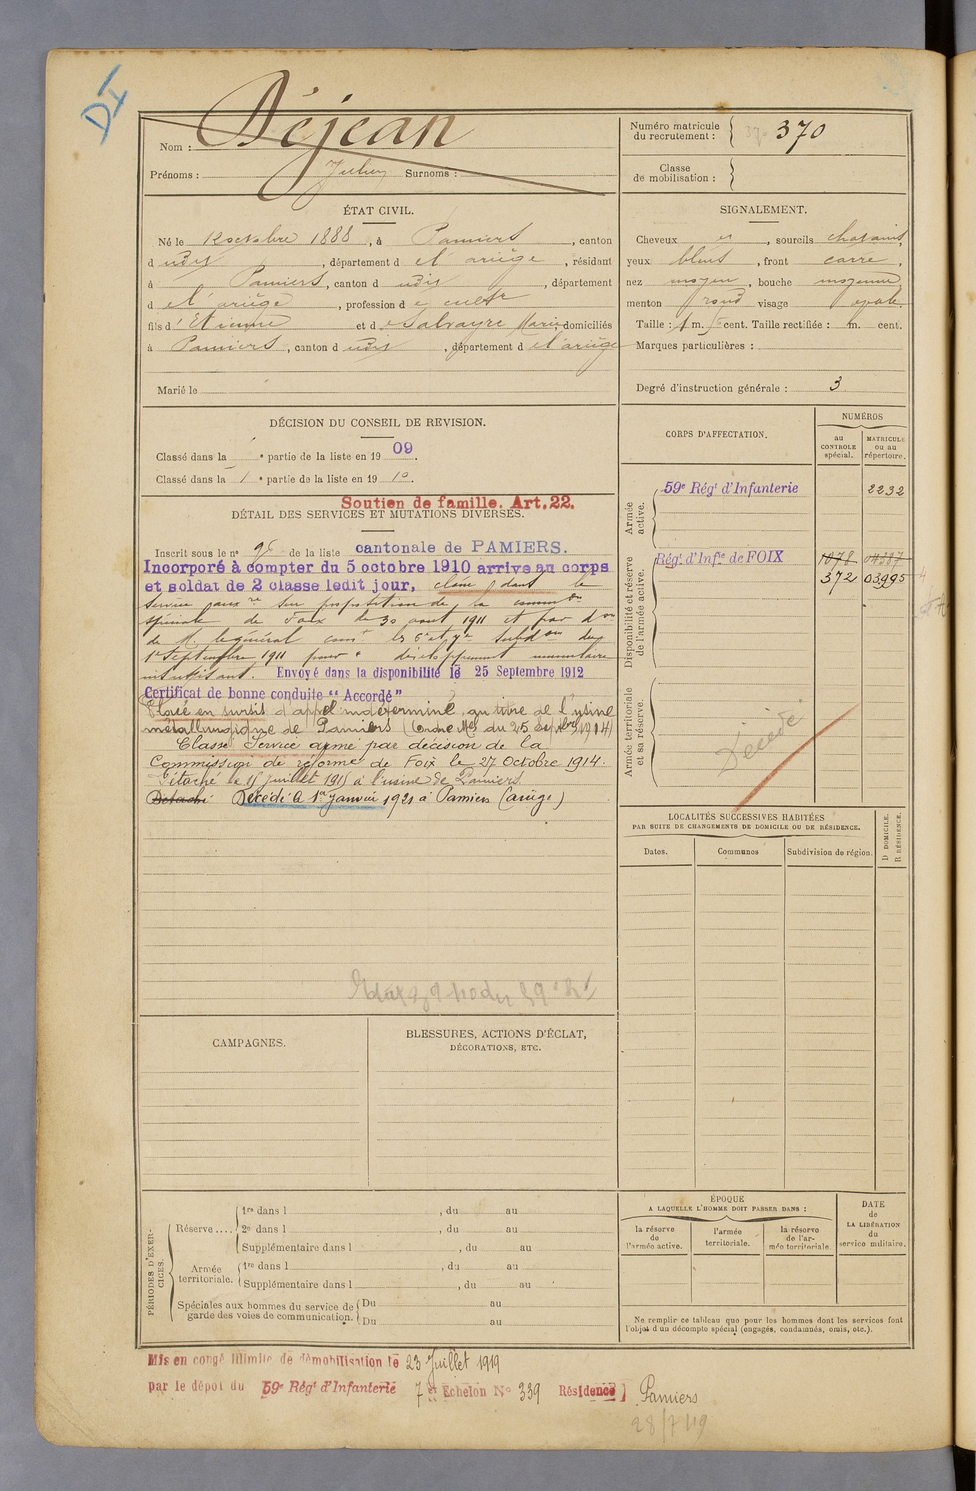 DI
Nom : Déjean
Prénoms : Surnoms :
Numéro matricule du recrutement : 370
Classe de mobilisation :
ÉTAT CIVIL.
Né le 12 octobre 1888, à Pamiers, canton
d udit, département d e l'ariège, résidant
à Pamiers, canton d udit, département
d e l'ariège, profession d e cultr
fils d' Etienne et d e Salvayre Marie domiciliés
à Pamiers, canton d udit, département d e l'ariège
Marié le
SIGNALEMENT.
Cheveux et, sourcils chatains,
yeux bleus, front carré,
nez moyen, bouche moyenne
menton rond visage ovale
Taille : 1 m. cent. Taille rectifiée : m. cent.
Marques particulières :
Degré d'instruction générale : 3
DÉCISION DU CONSEIL DE REVISION.
Classé dans la e partie de la liste en 1909.
Classé dans la 1 e partie de la liste en 1910.
Soutien de famille. Art. 22.
DÉTAIL DES SERVICES ET MUTATIONS DIVERSES.
Inscrit sous le n° de la liste cantonale de PAMIERS.
Incorporé à compter du 5 octobre 1910 arrive au corps
et soldat de 2 classe ledit jour, classé dans le
service auxre sur proposition de la common
spéciale de Foix du 30 aout 1911 et par don
de M. le général comt les 5e et 7e subdons du
1er Septembre 1911 pour développement musculaire
insuffisant. Envoyé dans la disponibilité le 25 Septembre 1912
Certificat de bonne conduite "Accordé"
Placé en sursis d'appel indéterminé au titre de l'usine
métallurgique de Pamiers (Ordre Mel du 25 septbre 1914)
Classé Service armé par décision de la
Commission de réforme de Foix le 27 Octobre 1914.
Détaché le 15 juillet 1915 à l'usine de Pamiers
Détaché Décédé le 1er Janvier 1921 à Pamiers (ariège)
CORPS D'AFFECTATION.
NUMÉROS
au CONTROLE spécial.
MATRICULE ou au répertoire.
Armée active.
59e Régt d'Infanterie 2232
Disponibilité et réserve de l'armée active.
Régt d'Infie de FOIX 1078 04387
372 03995
Armée territoriale et sa réserve.
Décédé
LOCALITÉS SUCCESSIVES HABITÉES
PAR SUITE DE CHANGEMENTS DE DOMICILE OU DE RÉSIDENCE.
Dates. Communes Subdivision de région.
D DOMICILE.
R RÉSIDENCE.
CAMPAGNES.
BLESSURES, ACTIONS D'ÉCLAT,
DÉCORATIONS, ETC.
PÉRIODES D'EXERCICES.
Réserve .... 1re dans l , du au
2e dans l , du au
Supplémentaire dans l , du au
Armée territoriale. 1re dans l , du au
Supplémentaire dans l , du au
Spéciales aux hommes du service de garde des voies de communication. Du au
Du au
ÉPOQUE
A LAQUELLE L'HOMME DOIT PASSER DANS :
la réserve de l'armée active.
l'armée territoriale.
la réserve de l'armée territoriale.
DATE de LA LIBÉRATION du service militaire.
Ne remplir ce tableau que pour les hommes dont les services font
l'objet d'un décompte spécial (engagés, condamnés, omis, etc.).
Mis en congé illimité de démobilisation le 23 Juillet 1919
par le dépot du 59e Régt d'Infanterie 7 e Echelon N° 339 Résidence Pamiers
28/7/19